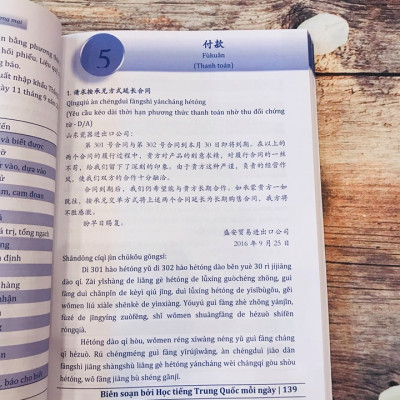 ng mại
ản bằng phương th
hối phiếu. Liệu
ng báo.
uất nhập khẩu
ày 11 tháng 9 năm
và biết được
vào, dựa vào
cam đoan
trị, tổng ngạch
định
nhận
báo cho biết
5
付款
Fùkuǎn
(Thanh toán)
1. 请求按承兑方式延长合同
Qǐngqiú àn chéngduì fāngshì yáncháng hétóng
(Yêu cầu kéo dài thời hạn phương thức thanh toán nhờ thu đổi chứng
từ - D/A)
山东瓷器进出口公司:
第 301 号合同与第 302 号合同到本月 30 日即将到期。在以上的
两个合同的履行过程中,贵方对产品的刻意求精,对履行合同的一丝
不苟,给我们留下了深刻的印象。由于贵方这种严谨、负责的经营作
风,使我们双方的合作十分融洽。
合同到期后,我们仍希望能与贵方长期合作。如承蒙贵方一如
既往,按承兑交单方式将上述两个合同延长为长期购售合同,我方将
不胜感激。
盼早日赐复。
盛安贸易进出口公司
2016 年 9 月 25 日
Shāndōng cíqì jìn chūkǒu gōngsī:
Dì 301 hào hétóng yǔ dì 302 hào hétóng dào běn yuè 30 rì jíjiāng
dào qí. Zài yǐshàng de liǎng gè hétóng de lǚxíng guòchéng zhōng, guì
fāng duì chǎnpǐn de kèyì qiú jīng, duì lǚxíng hétóng de yīsībùgǒu, gěi
wǒmen liú xiàle shēnkè de yìnxiàng. Yóuyú guì fāng zhè zhǒng yánjǐn,
fùzé de jīngyíng zuòfēng, shǐ wǒmen shuāngfāng de hézuò shífēn
róngqià.
Hétóng dào qí hòu, wǒmen réng xīwàng néng yǔ guì fāng cháng
qí hézuò. Rú chéngméng guì fāng yīrújìwǎng, àn chéngduì jiāo dān
fāngshì jiāng shàngshù liǎng gè hétóng yáncháng wéi chángqī gòu shòu
hétóng, wǒ fāng jiāng bù shèng gǎnjī.
Biên soạn bởi Học tiếng Trung Quốc mỗi ngày | 139